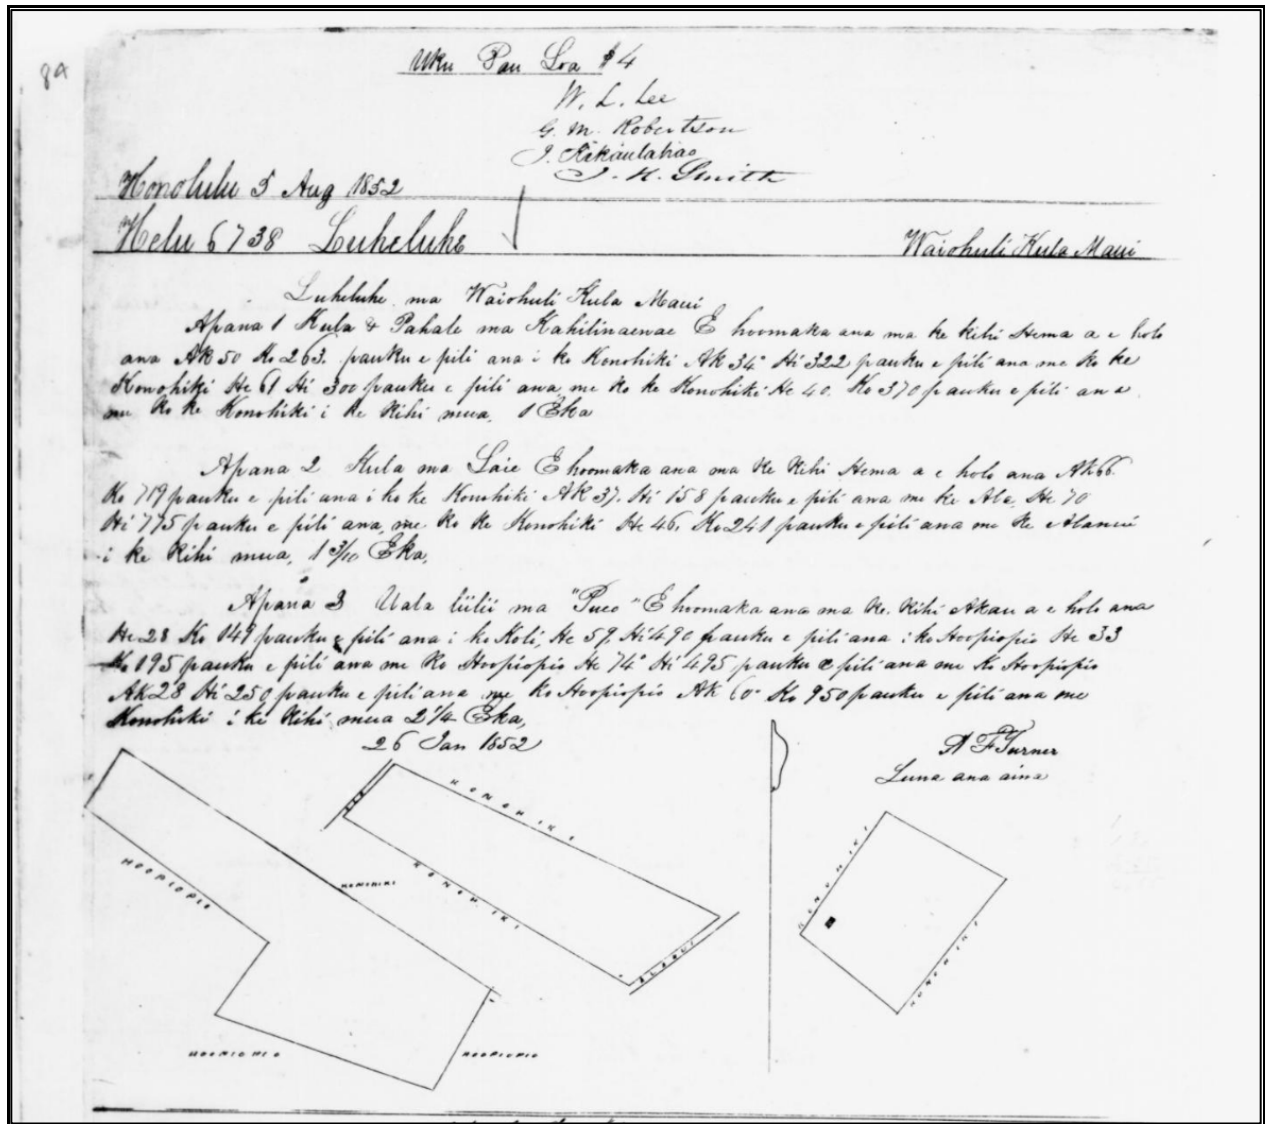 89
Uku Pau Loa $4
W. L. Lee
G. M. Robertson
J. Kekaulahao
J. H. Smith
Honolulu 5 Aug 1852
Helu 6738 Luheluhe Waiohuli Kula Maui
Luheluhe ma Waiohuli Kula Maui
Apana 1 Kula & Pahale ma Kahilinaenae E hoomaka ana ma ke kihi Hema a e holo
ana Ak 50 Ko 263. pauku e pili ana i ko Konohiki Ak 34° Hi 322 pauku e pili ana me ko ke
Konohiki He 61 Hi 300 pauku e pili ana me ko ke Konohiki He 40. Ko 370 pauku e pili ana
me ko ke Konohiki i ke Kihi mua, 1 Eka
Apana 2 Kula ma Laie E hoomaka ana ma ke Kihi Hema a e holo ana Ak 66.
Ko 719 pauku e pili ana i ko ke Konohiki Ak 37. Hi 158 pauku e pili ana me ke Ala, He 70
Hi 775 pauku e pili ana, me ko ke Konohiki He 46. Ko 241 pauku e pili ana me ke Alanui
i ke Kihi mua, 1 3/10 Eka,
Apana 3 Uala liilii ma "Pueo" E hoomaka ana ma ke Kihi Akau a e holo ana
He 28 Ko 149 pauku e pili ana i ko Koli, He 59. Hi 490 pauku e pili ana i ko Hoopiopio He 33
Ko 195 pauku e pili ana me ko Hoopiopio He 74° Hi 495 pauku e pili ana me ko Hoopiopio
Ak 28 Hi 250 pauku e pili ana me ko Hoopiopio Ak 60 Ko 950 pauku e pili ana me
Konohiki i ke Kihi mua 2 1/4 Eka,
26 Jan 1852
A F Turner
Luna ana aina
KONOHIKI
KONOHIKI
KONOHIKI
HOOPIOPIO
KONOHIKI
KONOHIKI
ALANUI
KONOHIKI
HOOPIOPIO
HOOPIOPIO